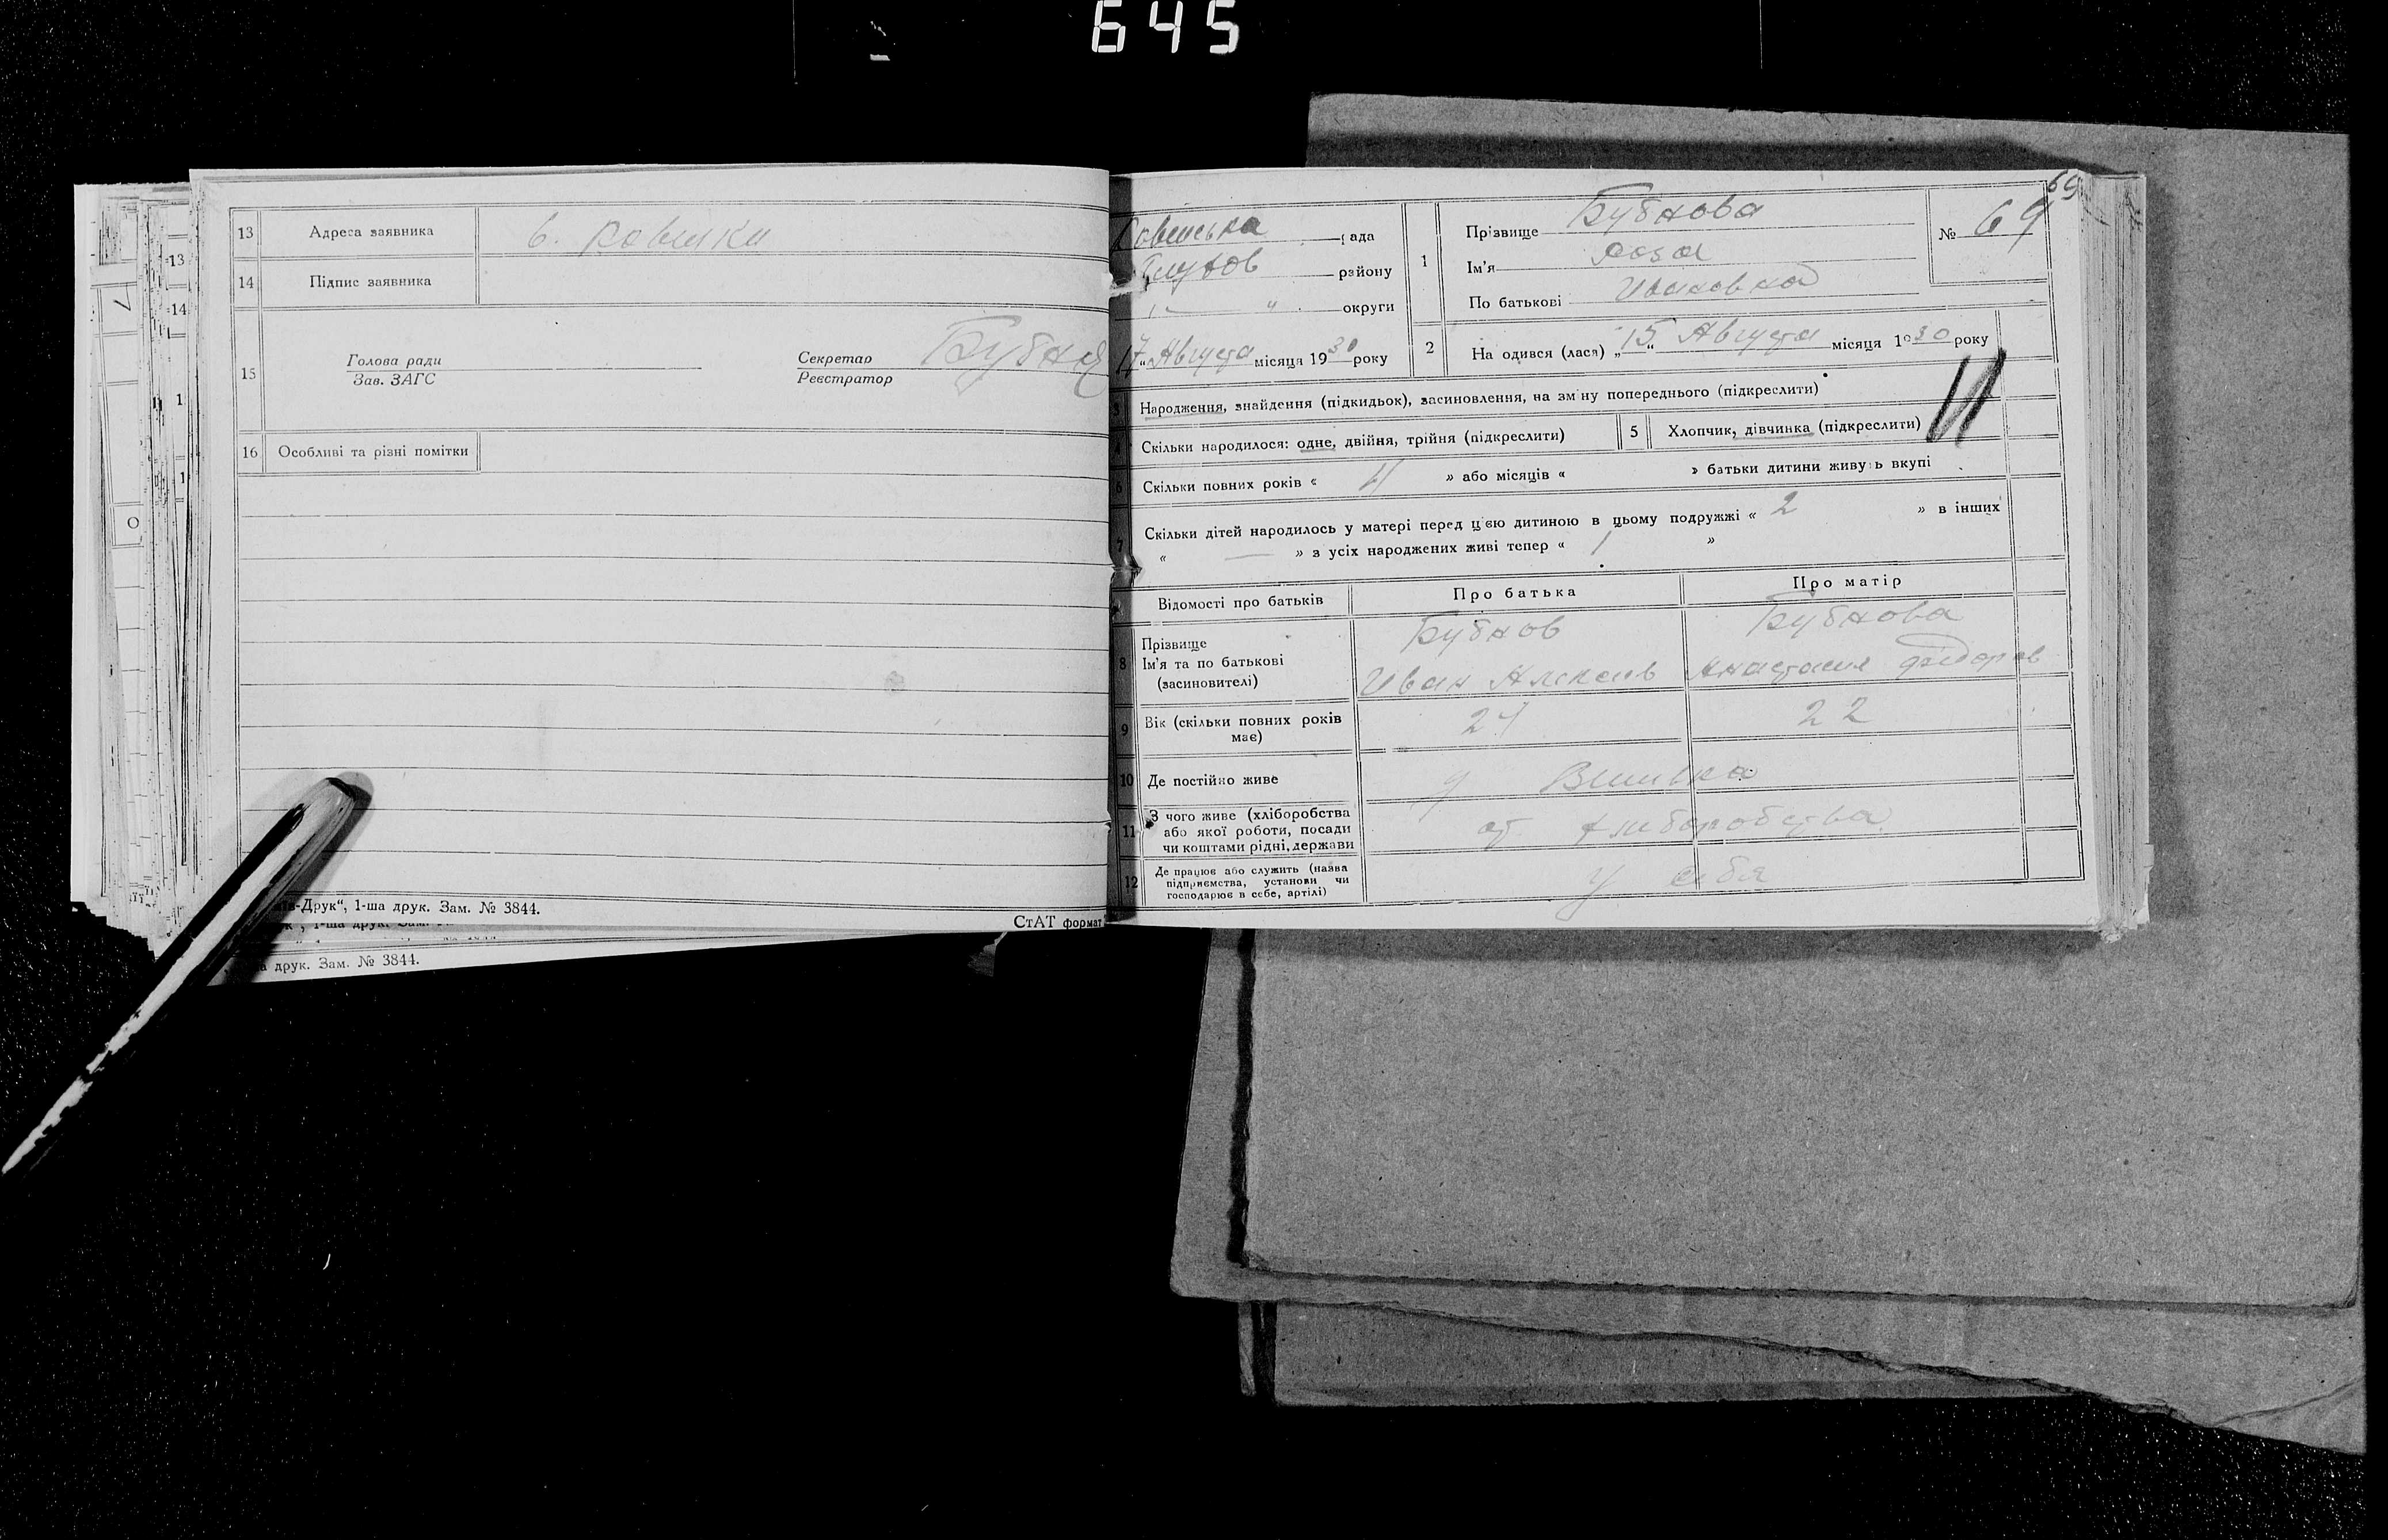 645
13 Адреса заявника
14 Підпис заявника
15 Голова ради
Зав. ЗАГС
Секретар
Реєстратор
16 Особливі та різні помітки
Друк“, 1-ша друк. Зам. № 3844.
СтАТ формат
друк. Зам. № 3844.
рада
району
" округи
17 „ Августа місяця 1930 року
69
1 Прізвище Бубнова
Ім'я Роза
По батькові Ивановна
№ 69
2 На одився (лася) „15“ Августа місяця 1930 року
3 Народження, знайдення (підкидьок), засиновлення, на зміну попереднього (підкреслити)
4 Скільки народилося: одне, двійня, трійня (підкреслити)
5 Хлопчик, дівчинка (підкреслити)
6 Скільки повних років « » або місяців « » батьки дитини живуть вкупі
7 Скільки дітей народилось у матері перед цією дитиною в цьому подружжі « 2 » в інших
« — » з усіх народжених живі тепер « 1 »
Відомості про батьків
Про батька
Про матір
8 Прізвище
Ім'я та по батькові
(засновителі)
Бубнов
Иван
Бубнова
Анастасия Федоров
9 Вік (скільки повних років має)
24
22
10 Де постійно живе
11 З чого живе (хліборобства
або якої роботи, посади
чи коштами рідні, держави
от хлиборобства
12 Де працює або служить (назва
підприємства, установи чи
господарює в себе, артілі)
у себя